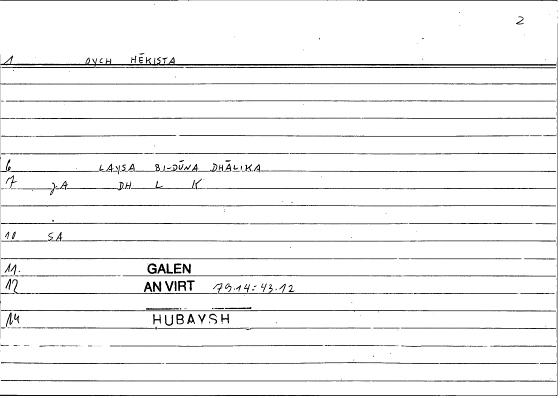 2
1 OYCH HĒKISTA
6 LAYSA BI-DŪNA DHĀLIKA
7 DH L K
10 SA
11. GALEN
12 AN VIRT 79.14:43.12
14 HUBAYSH